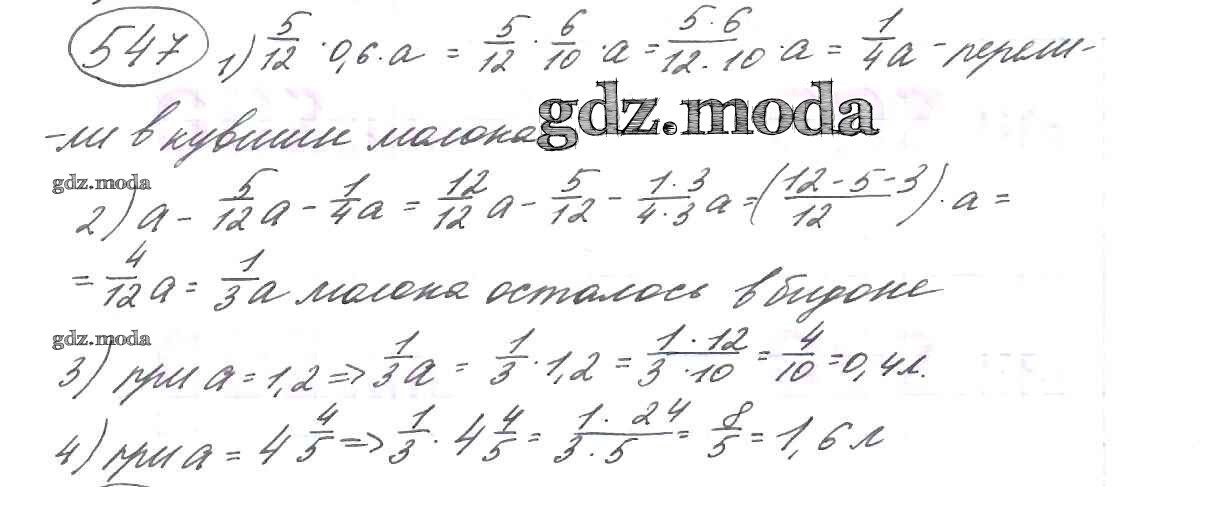 547 1) 5/12 · 0,6 · a = 5/12 · 6/10 · a = 5·6/12·10 · a = 1/4 a - перели-
-ли в кувшин молока
gdz.moda
gdz.moda
2) a - 5/12 a - 1/4 a = 12/12 a - 5/12 - 1·3/4·3 a = (12-5-3/12) · a =
= 4/12 a = 1/3 a молока осталось в бидоне
gdz.moda
3) при a = 1,2 => 1/3 a = 1/3 · 1,2 = 1·12/3·10 = 4/10 = 0,4 л.
4) при a = 4 4/5 => 1/3 · 4 4/5 = 1·24/3·5 = 8/5 = 1,6 л